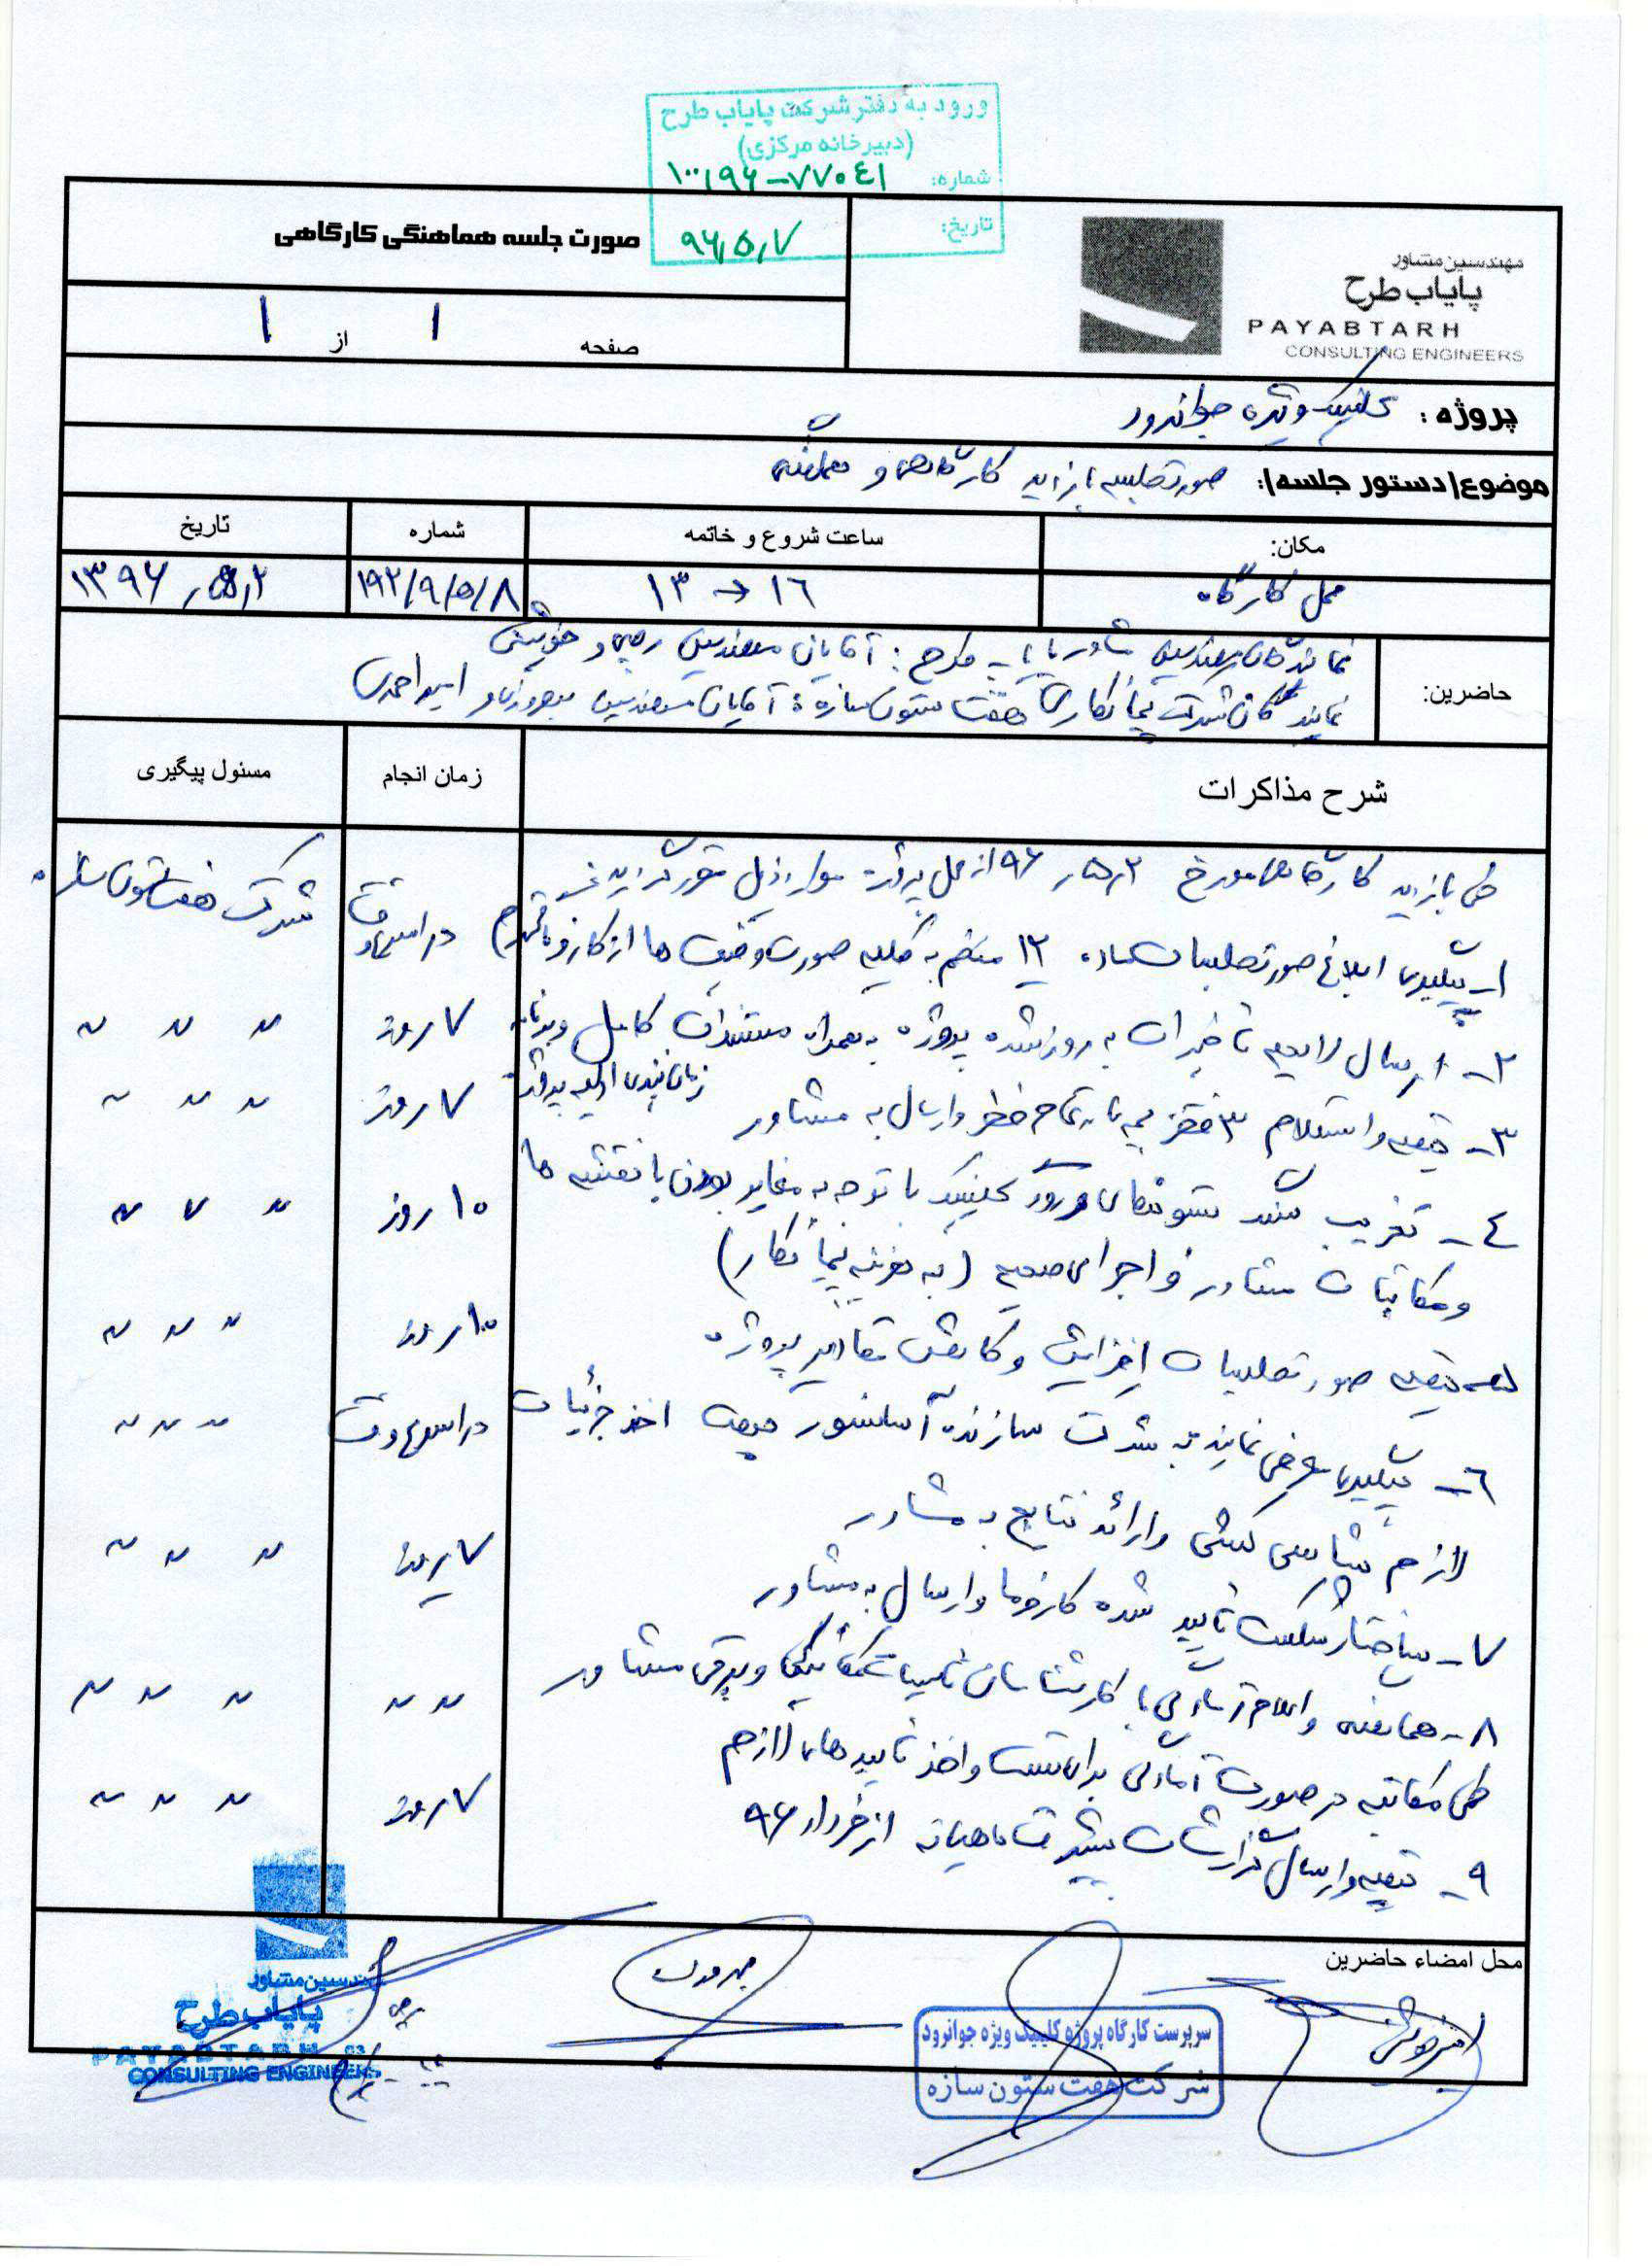 ورود به دفتر شرکت پایاب طرح
(دبیرخانه مرکزی)
شماره: ۱۰۰/۹۶-۷۷۰۴۱
تاریخ: ۹۶/۵/۷
صورت جلسه هماهنگی کارگاهی
صفحه ۱ از ۱
مهندسین مشاور
پایاب طرح
PAYABTARH
CONSULTING ENGINEERS
پروژه: کلینیک ویژه جوانرود
موضوع(دستور جلسه): صورتجلسه بازدید کارگاهی و
مکان: ساعت شروع و خاتمه شماره تاریخ
محل کارگاه ۱۳ → ۱۶ ۱۹۲/۹/۵/۸ ۱۳۹۶/۵/۲
حاضرین:
نمایندگان مهندسین مشاور پایاب طرح: آقایان مهندسین رجبی و خویشی
نمایندگان شرکت پیمانکاری هفت ستون سازه: آقایان مهندسین بهروزی و امیراحمدی
شرح مذاکرات زمان انجام مسئول پیگیری
طی بازدید کارگاهی مورخ ۹۶/۵/۲ از محل پروژه موارد ذیل مقرر گردید
۱- پیگیری ابلاغ صورتجلسات ماده ۱۲ منضم به کلیه صورت وضعیت ها از کارفرما در اسرع وقت شرکت هفت ستون سازه
۲- ارسال لایحه تاخیرات به روز شده پروژه به همراه مستندات کامل و برنامه ۷ روز " " "
زمان بندی اولیه پروژه
۳- تهیه و استعلام ۳ فقره بیمه نامه تمام خطر و ارسال به مشاور ۷ روز " " "
۴- تخریب ستونهای ورودی کلینیک با توجه به مغایر بودن با نقشه ها ۱۰ روز " " "
و مکاتبات مشاور و اجرای صحیح (به هزینه پیمانکار)
۵- تهیه صورتجلسات افزایش و کاهش مقادیر پروژه ۱۰ روز " " "
۶- پیگیری معرفی نماینده شرکت سازنده آسانسور جهت اخذ جزئیات در اسرع وقت " " "
لازم شاسی کشی و ارائه نتایج به مشاور
۷- ساختار شکست تایید شده کارفرما و ارسال به مشاور ۷ روز " " "
۸- هماهنگی و اعلام آمادگی با کارشناسان تاسیسات مکانیکی و برقی مشاور " " " " "
طی مکاتبه در صورت آمادگی برای تست و اخذ تاییدهای لازم
۹- تهیه و ارسال گزارشات پیشرفت ماهیانه از خرداد ۹۶ ۷ روز " " "
محل امضاء حاضرین
سرپرست کارگاه پروژه کلینیک ویژه جوانرود
شرکت هفت ستون سازه
مهندسین مشاور
پایاب طرح
PAYABTARH
CONSULTING ENGINEERS